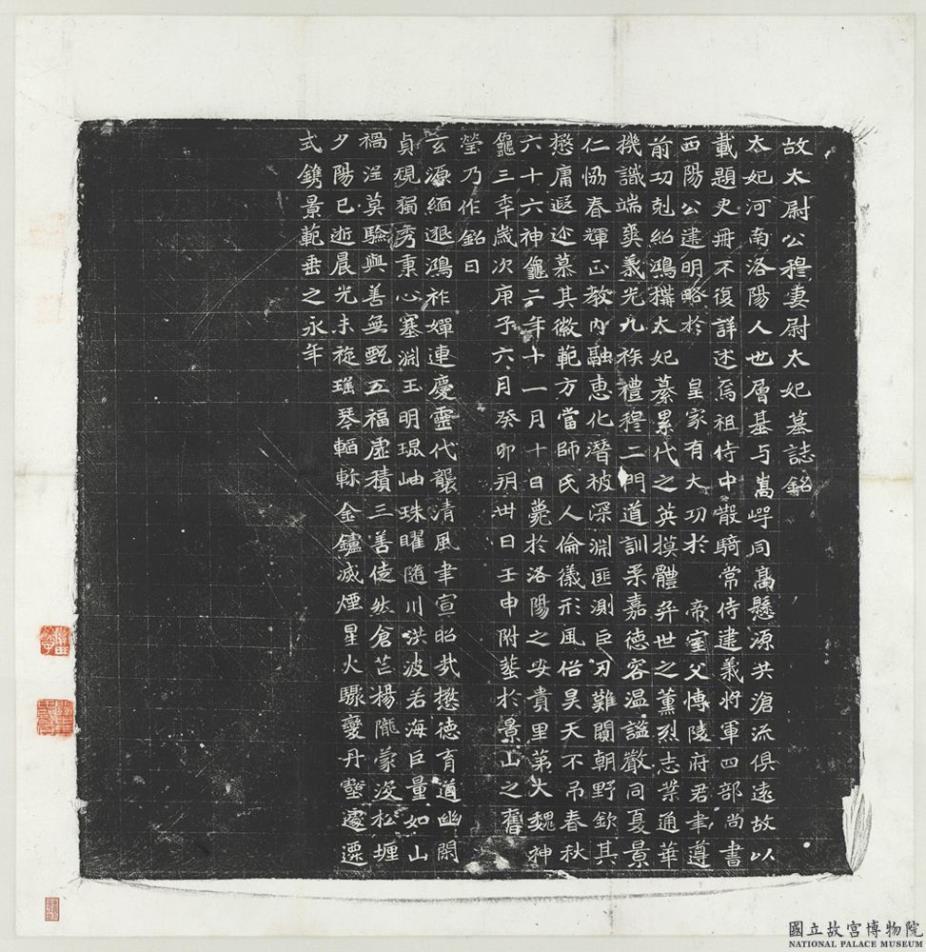 故太尉公穆妻尉太妃墓誌銘
太妃河南洛陽人世層基与嵩㟧同高懸源共滄流俱遠故以
載題史冊不復詳述焉祖侍中散騎常侍建義將軍四部尚書
西陽公建明略於 皇家有大功於 帝室父博陵府君聿遵
前功剋紹鴻構太妃纂累代之英摸體弈世之薰烈志業通華
機識端爽羲光九族禮穆二門道訓柔嘉德容溫謐嚴同夏景
仁恊春輝正教內融惠化潛被深淵匪測巨刃難闚朝野欽其
懋庸遐迩慕其徽範方當師氏人倫儀形風俗昊天不吊春秋
六十六神龜二年十一月十日薨於洛陽之安貴里第大魏神
龜三年歲次庚子六月癸卯朔卅日壬申附塟於景山之舊
塋乃作銘曰
玄源緬邈鴻祚嬋連慶靈代襲清風聿宣昭哉懋德育道幽閑
貞規獨秀秉心塞淵玉明琨岫珠曜隨川洪波若海巨量如山
禍淫莫驗與善無甄五福虛積三善徒然倉芒楊隴蒙淺松堙
夕陽已逝晨光未旋瑤琴輟軫金鑪滅煙星火驟變丹壑遽遷
式鐫景範垂之永年
國立故宮博物院
NATIONAL PALACE MUSEUM